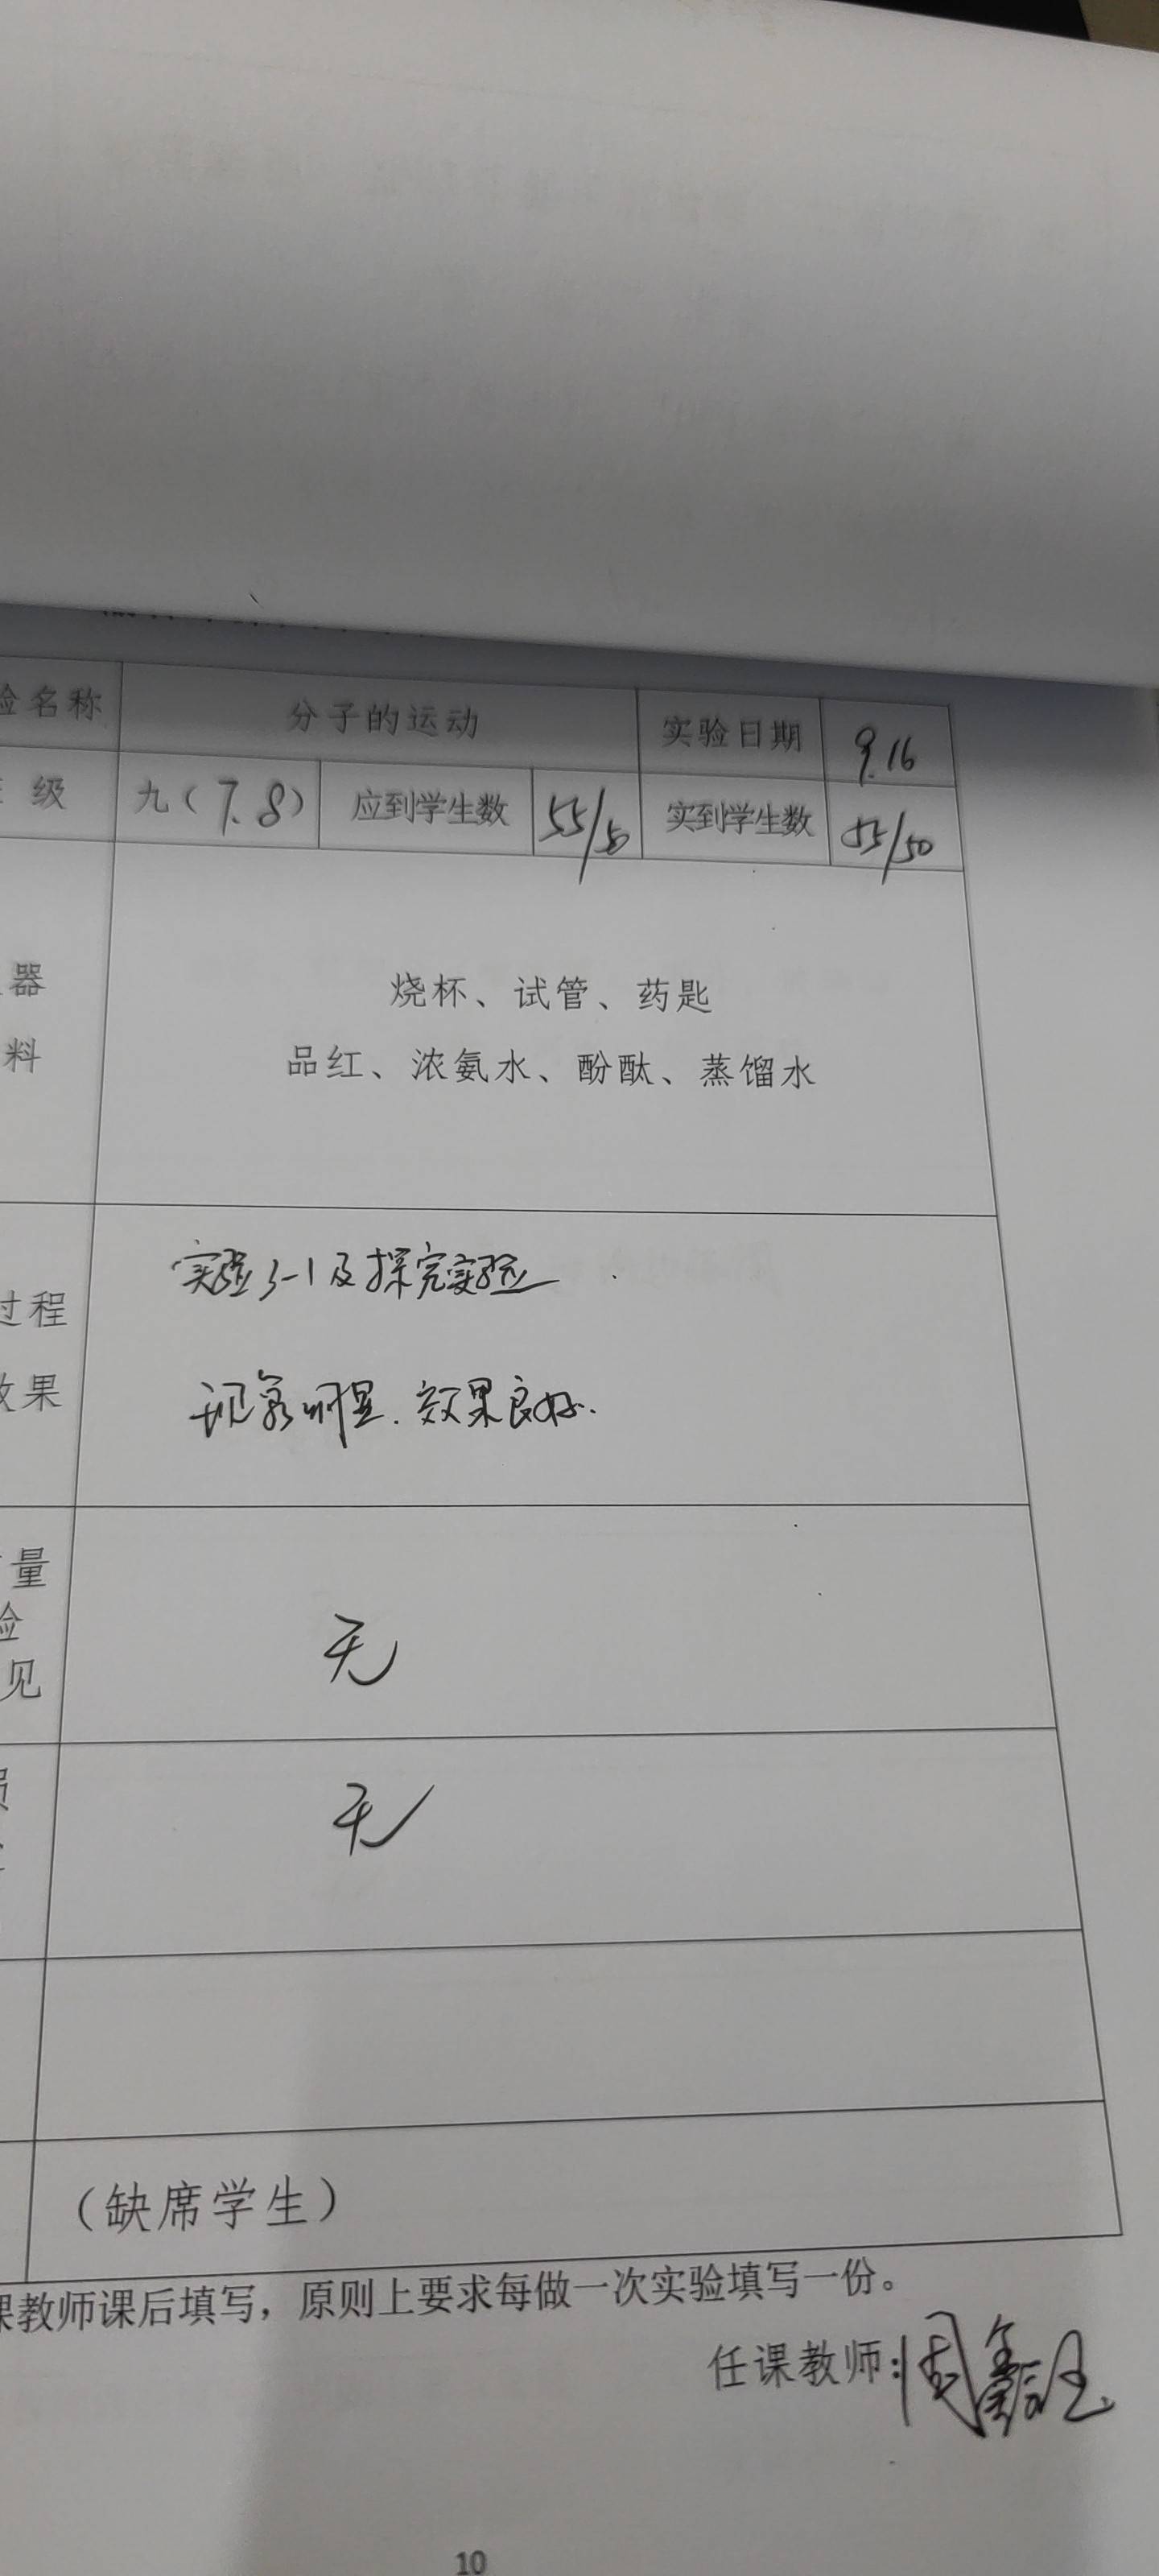 验名称 分子的运动 实验日期 9.16
级 九（7.8） 应到学生数 55/50 实到学生数 55/50
器 烧杯、试管、药匙
料 品红、浓氨水、酚酞、蒸馏水
实验3-1及探究实验
过程
效果 现象明显.效果良好.
量
验 无
见
无
（缺席学生）
课教师课后填写，原则上要求每做一次实验填写一份。
任课教师:周
10